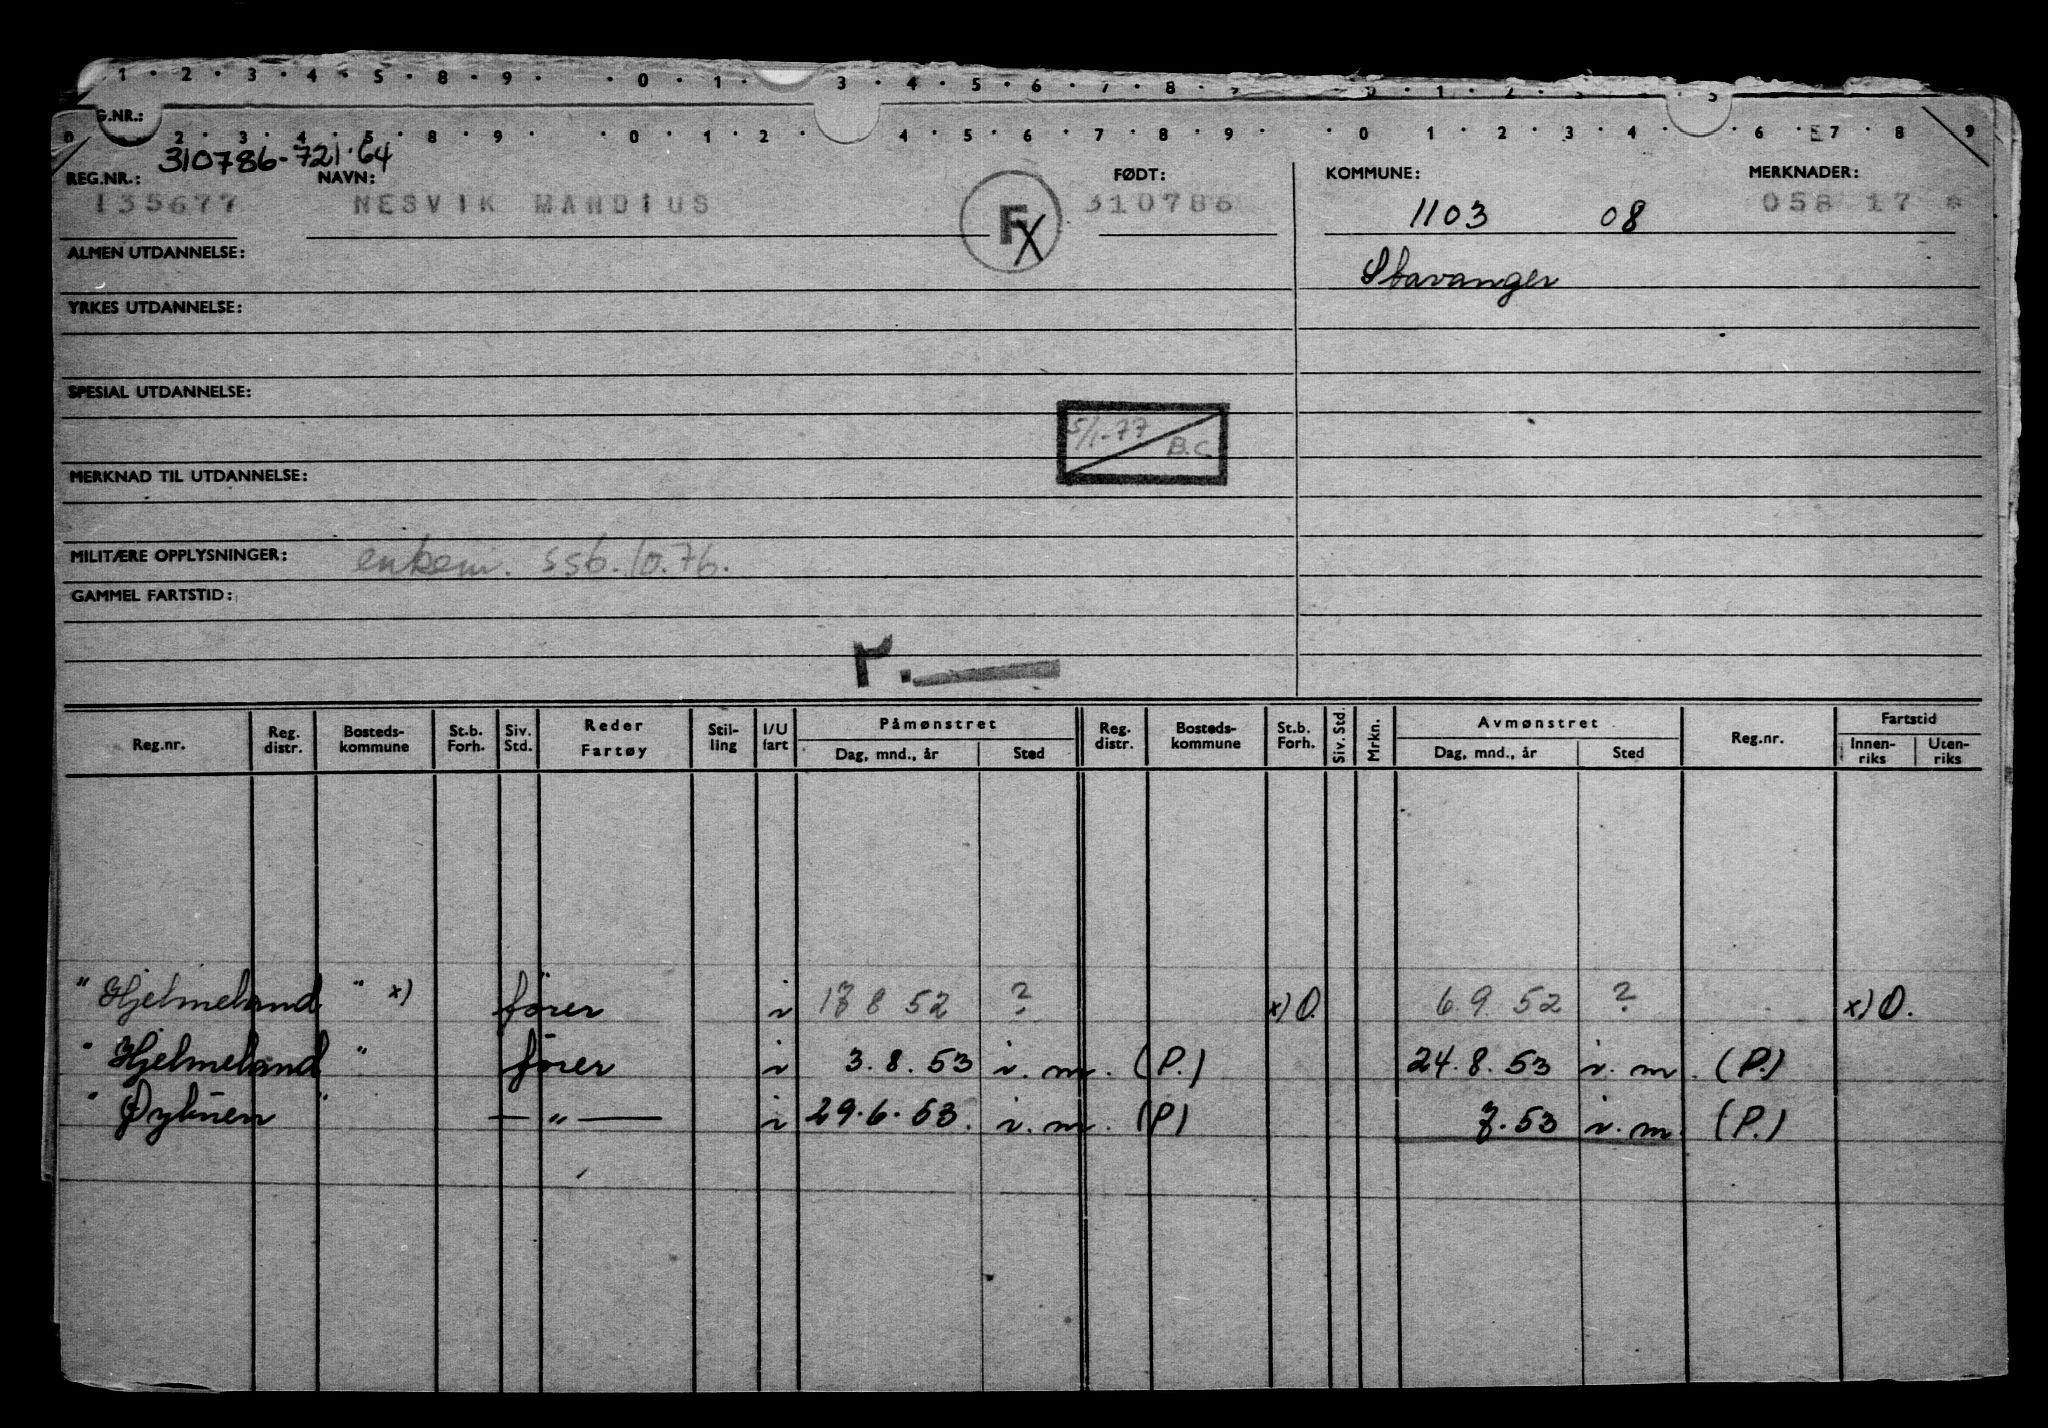 1 · 2 · 3 · 4 · 5 · 8 · 9 · · 0 · 1 · 3 · 4 · 5 · 6 · 7 · 8 · 1 · 2
G.NR.:
2 · 3 · 4 · 5 · 8 · 9 · · 0 · 1 · 2 · 4 · 5 · 6 · 7 · 8 · 9 · · 0 · 1 · 2 · 3 · 4 · 6 · 7 · 8 9
310786-721.64
REG.NR.: NAVN: FØDT: KOMMUNE: MERKNADER:
135677 NESVIK MANDIUS F X 310786 1103 08 058 17 *
ALMEN UTDANNELSE: Stavanger
YRKES UTDANNELSE:
SPESIAL UTDANNELSE:
5/1-77 B.C
MERKNAD TIL UTDANNELSE:
MILITÆRE OPPLYSNINGER: enkem. ssb. 10.76.
GAMMEL FARTSTID:
Reg.nr. Reg. distr. Bosteds-kommune St.b. Forh. Siv. Std. Reder Fartøy Stil-ling I/U fart Påmønstret Dag, mnd., år Sted Reg. distr. Bosteds-kommune St.b. Forh. Siv. Std. Mrkn. Avmønstret Dag, mnd., år Sted Reg.nr. Fartstid Innen-riks Uten-riks
" Hjelmeland " x) fører i 17 8 52 ? x) O. 6 9 52 ? x) O.
" Hjelmeland " fører i 3.8.53 i.m. (P.) 24.8.53 i.m. (P.)
" " — " — i 29.6.53. i.m. (P) 7.53 i.m. (P.)